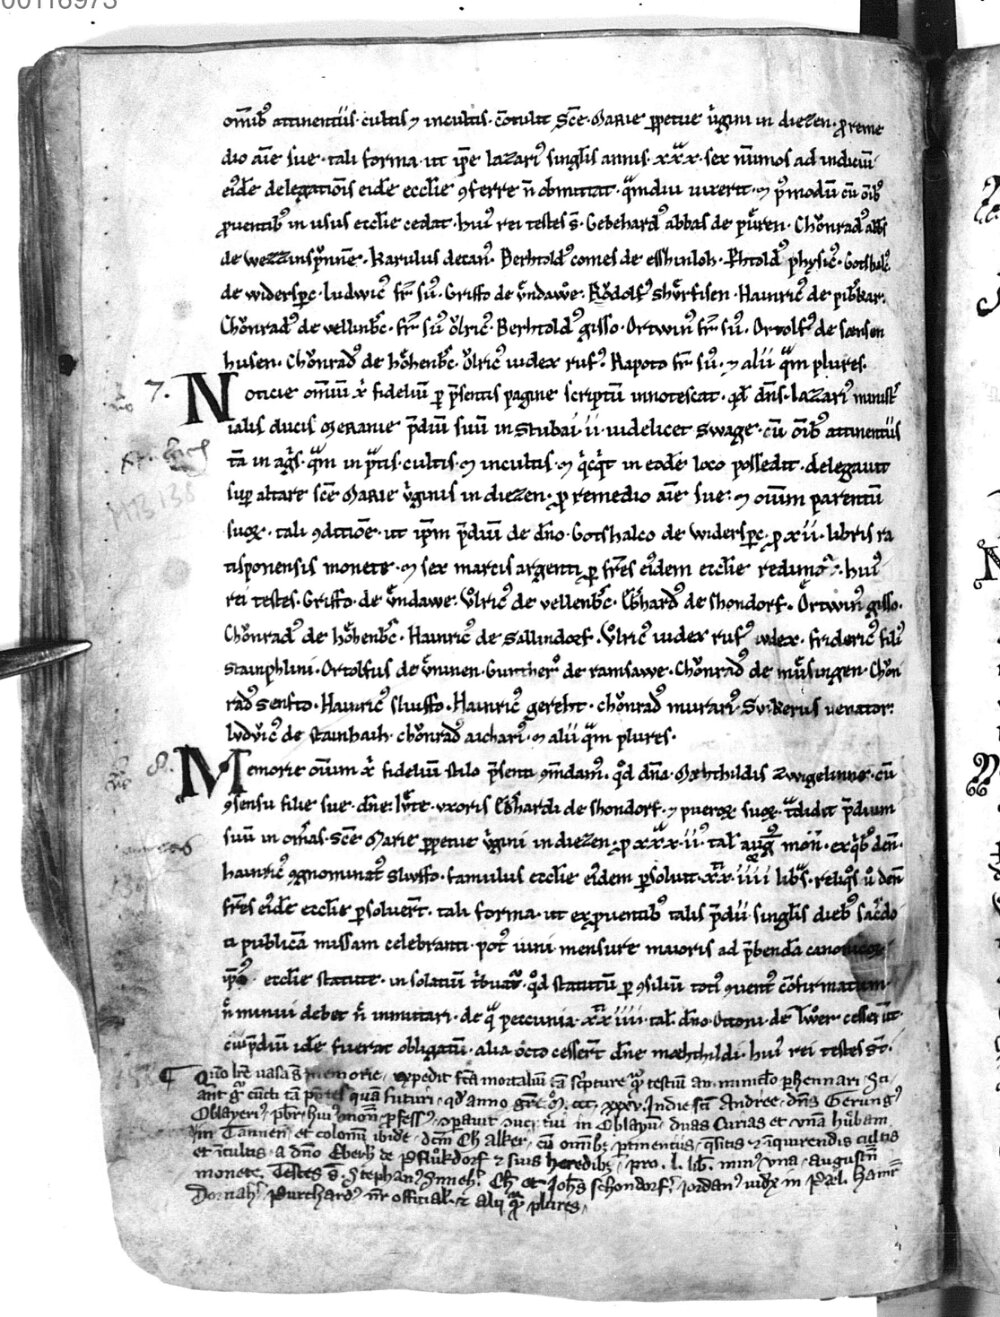 00116973
om̄ib⁹ attinentiis · cultis ⁊ incultis · c̄tulit Sc̄e · Marie ꝑpetue v̓gini in diezen · ꝓ reme
dio aīe sue · tali forma · ut ip̄e lazari⁹ singl̓is annis · xxx · sex nūmos ad indiciū
ei⁹dē delegatiōis eidē eccl̓ie ꝯferre n̄ obmittat · qͣmdiu vixerit · ⁊ p⁹modū cū oīb⁹
ꝓuentib⁹ in usus eccl̓ie cedat · hui⁹ rei testes s̄ · Gebehard⁹ abbas de pūren · Chv̊nrad⁹ abb̄s
de wezzinsp̓nne · Karulus decan⁹ · Berhtold⁹ comes de esshinloh · Phtold⁹ physic⁹ · Gotshalc⁹
de widersp̄c · ludwic⁹ fr̄ su⁹ · Griffo de v̓ndawe · Rv̊dolf⁹ shv̓rfisen · Hainric⁹ de pib̓kar ·
Chv̊nrad⁹ de vellinb̄c · fr̄ su⁹ v̊lric⁹ · Berhtold⁹ gisso · Ortwin⁹ fr̄ su⁹ · Ortolf⁹ de
husen · Chv̊nrad⁹ de hōhenb̄c · v̊lric⁹ iudex ruf⁹ · Rapoto fr̄ su⁹ · ⁊ alii qͣm plures ·
7. Noticie om̄iū x̄ fideliū ꝑ p̄sentis pagine scriptū innotescat · qd̄ dn̄s · lazari⁹ minist̓
ialis ducis Meranie p̄diū suū in Stubai · ii · videlicet Swage · cū oīb⁹ attinentiis
tā in ag̓s · qͣm in p̄tis · cultis · ⁊ incultis · ⁊ qͥcqͥt in eodē loco possedit · delegavit
sup̄ altare sc̄e Marie v̓ginis in diezen · ꝓ remedio aīe sue · ⁊ oīum parentū
suoꝝ · tali ꝯditiōe · ut ip̄m p̄diū de dn̄o · Gotshalco de widersp̄c · ꝓ xii · libris ra
tisponensis monete · ⁊ sex marcis argenti ꝑ fr̄es ei⁹dem eccl̓ie redimat̓ · hui⁹
rei testes · Griffo · de v̓ndawe · v̊lric⁹ de vellenb̄c · Ebhard⁹ de shondorf · Ortwin⁹ gisso ·
Chv̊nrad⁹ de hōhenb̄c · Hainric⁹ de Sallindorf · v̊lric⁹ iudex ruf⁹ · frideric⁹ fili⁹
Stainphlini · Ortolfus de v̓ninen · Gunther⁹ de ramsawe · Chv̊nrad⁹ de mv̓singen · Chv̊n
rad⁹ senfto · Hainric⁹ sluiffo · Hainric⁹ gereht · chv̊nrad⁹ murari⁹ · Svikerus venator ·
lvdvic⁹ de stainbach · chv̊nrad⁹ aichari⁹ · ⁊ alii qͣm plures ·
8. Memorie oīum x̄ fideliū stilo p̄senti ꝯm̄dam⁹ · qd̄ dn̄a · Mæhthildis Zwigelinne · cū
ꝯsensu filie sue · dn̄e · · uxoris Ebhardi de shondorf · ⁊ pueroꝝ suoꝝ · tͣdidit p̄dium
suū in · Sc̄e Marie ꝑpetue v̓gini in diezen · ꝓ xxx · ii · tal̓ aug̓ mon̄ · ex qͥb⁹ den̄ ·
hainric⁹ ꝯgnominat⁹ sluiffo · famulus eccl̓ie ei⁹dem ꝑsoluit · xx · iiii lib̄s · reliqͦs v̊ den̄
fr̄es ei⁹dē eccl̓ie ꝑsoluer̄t · tali forma · ut ex ꝓuentib⁹ talis p̄dii · singl̓is dieb⁹ sac̓do
ti publicā missam celebranti · pot⁹ uini mensure maioris ad p̄bendā canonicoꝝ
ip̄i⁹ · eccl̓ie statute · in solatiū t̓buat̓ · qd̄ statutū ꝑ ꝯsiliū toti⁹ ꝯuent⁹ cōfirmatum ·
n̄ minui debet n̄ inmutari · de qͣ peccunia · xx iiii · tal̓ · dn̄o Ottoni · de · cesserūt ·
cui p̄diū idē fuerat obligatū · alia octo cesser̄t dn̄e mæhthildi · hui⁹ rei testes st̄ ·
¶ Qm̄ lr̄e vasa s̄ memorie, expedit fc̄a mortaliū tā sc̓pture qͣ testiū ammiculo ꝑhennari · Sci
ant g̓ cūcti tā p̄ntes quā futuri, qd̄ anno gr̄e · M · ccc · xxxv · Indie scī Andree · dn̄s Gerung⁹
Oblayeri⁹ · pb̄r hui⁹ mon̄ ꝓfess⁹, ꝯparauit in Oblayū, duas Curias et vnā hūbam,
in Tannen, et colonū ibidē · dc̄m Ch̄ alker, cū om̄ib⁹ ꝑtinentiis, qͦsitis ⁊ īquirendis cultis
et īcultis, a dn̄o Eberh̄ de Pflukdorf ⁊ suis heredib⁹, pro · l · lib̄ · min⁹ vna, augustn̄
monete. Testes s̄ · Stephan⁹ Ch̄ et Joh̄s schondorf, Jordan⁹ iudex in Hainr̄
Dornah̄ · Purchard⁹ nr̄ official · ⁊ alii qͣ plures,